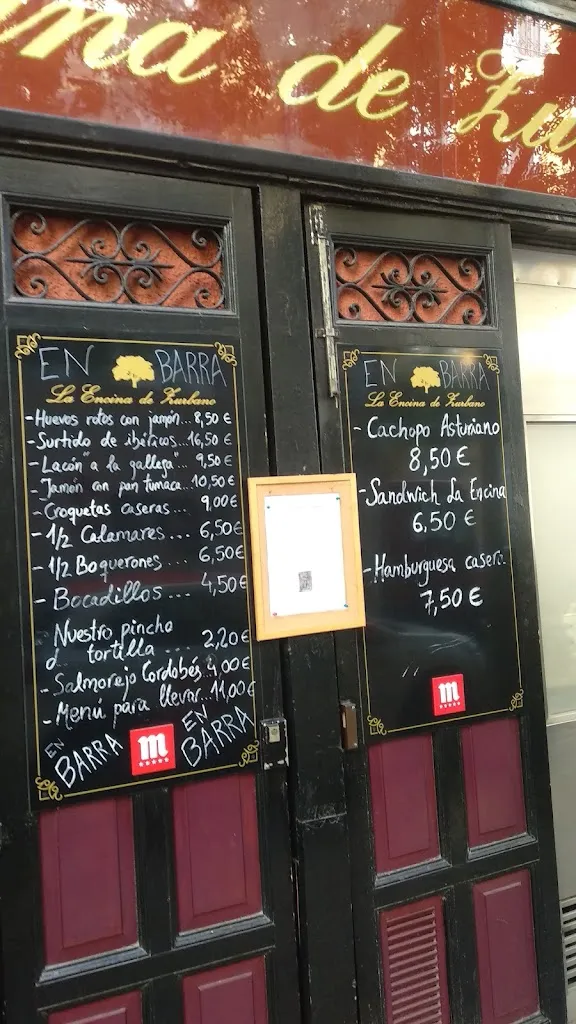 na de Zu
EN BARRA
La Encina de Zurbano
- Huevos rotos con jamón... 8,50 €
- Surtido de ibéricos... 16,50 €
- Lacón "a la gallega"... 9,50 €
- Jamón con pan tumaca. 10,50 €
- Croquetas caseras... 9,00€
- 1/2 Calamares.... 6,50€
- 1/2 Boquerones.... 6,50€
- Bocadillos.... 4,50€
Nuestro pincho
d tortilla... 2,20€
- Salmorejo Cordobés. 4,00€
- Menú para llevar... 11,00€
EN BARRA
m
EN BARRA
EN BARRA
La Encina de Zurbano
- Cachopo Asturiano
8,50 €
- Sandwich La Encina
6,50 €
- Hamburguesa casera.
7,50 €
m